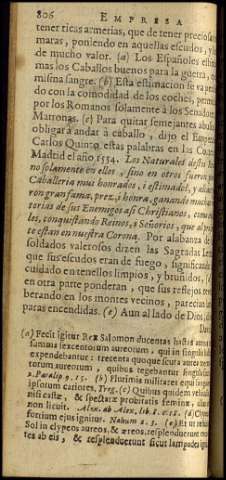 806 EMPRESA
tener ricas armerias, que de tener preciosas
maras, poniendo en aquellas escudos, y l
de mucho valor. (a) Los Españoles esti
mas los Caballos buenos para la guerra, q
misma sangre. (b) Esta estimacion se va p
do con la comodidad de los coches, permi
por los Romanos solamente à los Senadore
Matronas. (c) Para quitar semejantes abuso
obligar à andar à caballo, dijo el Empera
Carlos Quinto estas palabras en las Cortes
Madrid el año 1534. Los Naturales destos R
no solamente en ellos, sino en otros fueron po
Caballeria mui honrados, i estimados, y alcan
ron gran fama, prez, i honra, ganando muchas
torias de sus Enemigos assi Christianos, como
les, conquistando Reinos, i Señorios, que al pre
te estan en nuestra Corona. Por alabanza de
soldados valerosos dizen las Sagradas Le
que sus escudos eran de fuego, significando
cuidado en tenellos limpios, y bruñidos, (d
en otra parte ponderan, que sus reflejos rev
berando en los montes vecinos, parecian lam
paras encendidas. (e) Aun al lado de Dios, di
Davi
(a) Fecit igitur Rex Salomon ducentas hastas aureas
summa sexcentorum aureorum, qui in singulis hastis
expendebantur: trecenta quoque scuta aurea trecen-
torum aureorum, quibus tegebantur singula scuta
2. Paralip. 9. 15. (b) Plurimis militares equi sanguine
ipsorum cariores. Treg. (c) Quibus quidem vehiculis
nisi castæ, & spectatæ probitatis feminæ, uti
non licuit. Alex. ab Alex. lib. 8. c. 18. (d) Clypeus
fortium ejus ignitus. Nahum 2. 3. (e) Et ut refulsit
Sol in clypeos aureos, & æreos, resplenduerunt mon-
tes ab eis, & resplenduerunt sicut lampades ignis